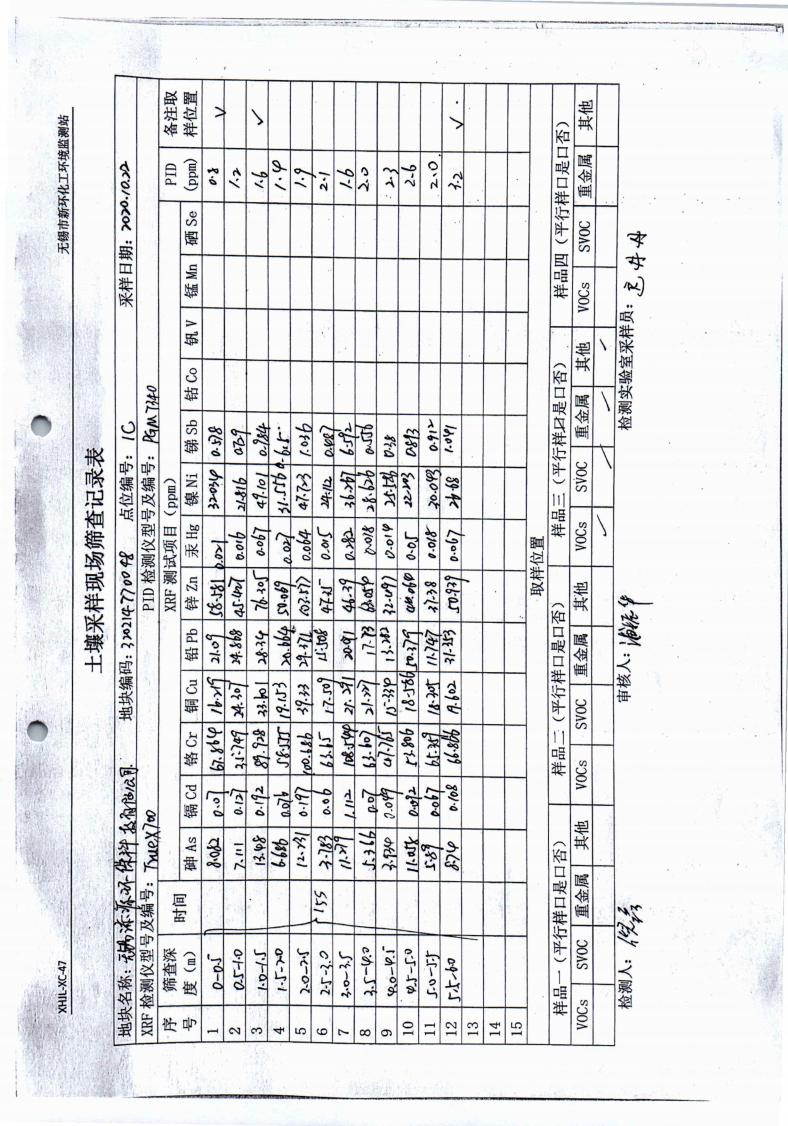 XHJL-XC-47 无锡市新环化工环境监测站
土壤采样现场筛查记录表
地块名称: 地块编码:320214770048 点位编号:1C 采样日期:2020.10.22
XRF 检测仪型号及编号:TrueX700 PID 检测仪型号及编号:PGM7340
序号 筛查深度(m) 时间 XRF 测试项目(ppm) PID (ppm) 备注取样位置
砷 As 镉 Cd 铬 Cr 铜 Cu 铅 Pb 锌 Zn 汞 Hg 镍 Ni 锑 Sb 钴 Co 钒 V 锰 Mn 硒 Se
1 0-0.5 8.082 0.07 67.864 16.219 21.09 58.581 0.021 32.034 0.578 0.8 ✓
2 0.5-1.0 7.111 0.127 24.201 24.868 45.407 0.016 21.816 1.2
3 1.0-1.5 13.408 0.192 89.928 33.601 28.34 76.305 0.067 47.101 0.984 1.6 ✓
4 1.5-2.0 6.686 0.076 58.555 19.153 20.664 50.069 0.027 1.4
5 2.0-2.5 12.231 0.197 100.686 39.33 29.376 102.577 0.064 47.723 1.036 1.9
6 2.5-3.0 155 3.783 0.06 63.65 17.509 15.508 47.25 0.015 24.112 2.1
7 3.0-3.5 11.279 1.112 108.540 46.39 0.282 36.267 6.592 1.6
8 3.5-4.0 5.366 0.07 63.607 21.227 17.73 0.018 28.626 0.556 2.0
9 4.0-4.5 3.930 0.049 41.765 15.330 13.282 0.014 0.38 2.3
10 4.5-5.0 11.058 0.092 53.806 18.586 50.379 0.05 22.203 0.893 2.6
11 5.0-5.5 5.89 0.067 65.359 18.205 11.747 37.38 0.018 20.093 0.912 2.0
12 5.5-6.0 8.74 0.108 66.886 19.602 31.353 50.939 0.067 1.041 3.2 ✓
13
14
15
取样位置
样品一(平行样口是口否) 样品二(平行样口是口否) 样品三(平行样是口否) 样品四(平行样口是口否)
VOCs SVOC 重金属 其他 VOCs SVOC 重金属 其他 VOCs SVOC 重金属 其他 VOCs SVOC 重金属 其他
检测人: 审核人: 检测实验室采样员: